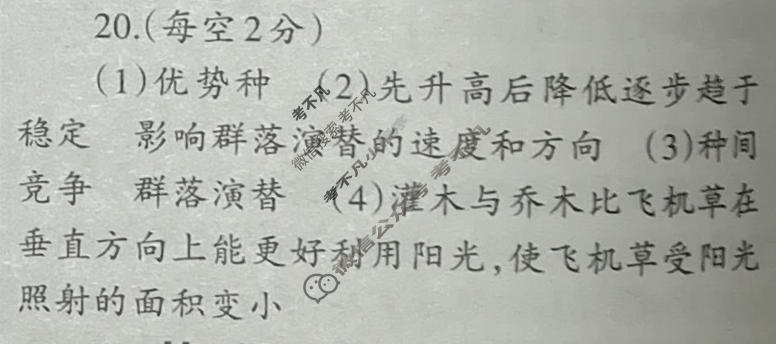 20.(每空2分)
(1)优势种 (2)先升高后降低逐步趋于
稳定 影响群落演替的速度和方向 (3)种间
竞争 群落演替 (4)灌木与乔木比飞机草在
垂直方向上能更好利用阳光,使飞机草受阳光
照射的面积变小
考不凡
微信搜索考不凡
考不凡
微信公众号 考不凡